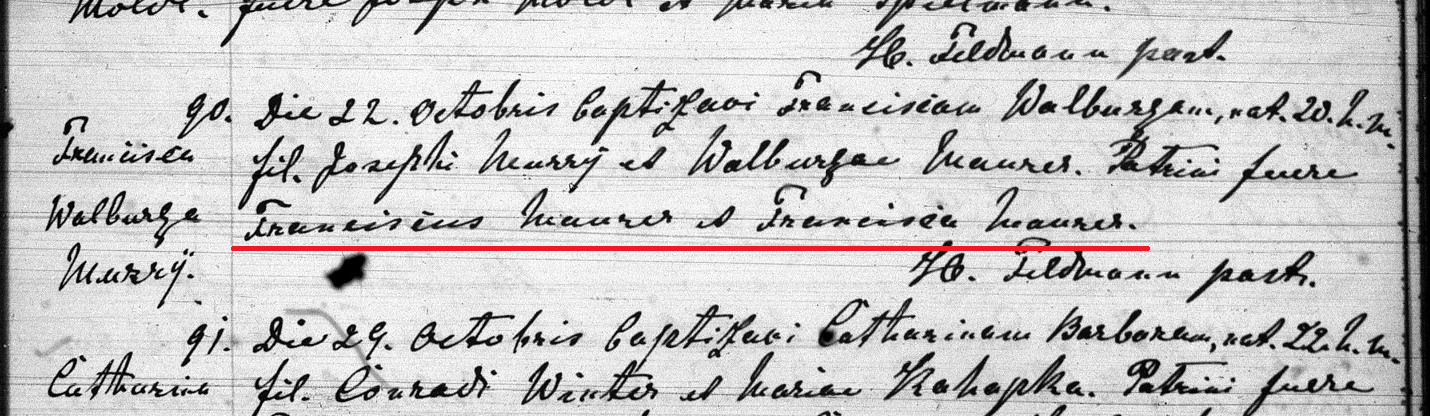 Moldt. fuere Joseph Moldt et Maria Spielmann.
H. Feldmann past.
90. Die 22. Octobris baptizavi Franciscam Walburgam, nat. 20. h. m.
Francisca fil. Josephi Murrÿ et Walburgae Maurer. Patrini fuere
Walburga Franciscus Maurer et Francisca Maurer.
Murrÿ. H. Feldmann past.
91. Die 29. Octobris baptizavi Catharinam Barbaram, nat. 22. h. m.
Catharina fil. Conradi Winter et Mariae Kahapka. Patrini fuere